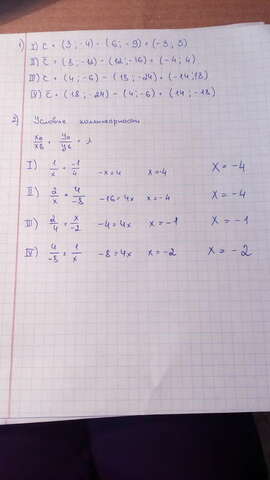 1) I) c̄ = (3; -4) - (6; -9) = (-3; 5)
II) c̄ = (8; -12) - (12; -16) = (-4; 4)
III) c̄ = (4; -6) - (18; -24) = (-14; 18)
IV) c̄ = (18; -24) - (4; -6) = (14; -18)
2) Условие коллинеарности
xa/xb = ya/yb = λ
I) 1/x = -1/4 -x = 4 x = -4 x = -4
II) 2/x = 4/-8 -16 = 4x x = -4 x = -4
III) 2/4 = x/-2 -4 = 4x x = -1 x = -1
IV) 4/-8 = 1/x -8 = 4x x = -2 x = -2